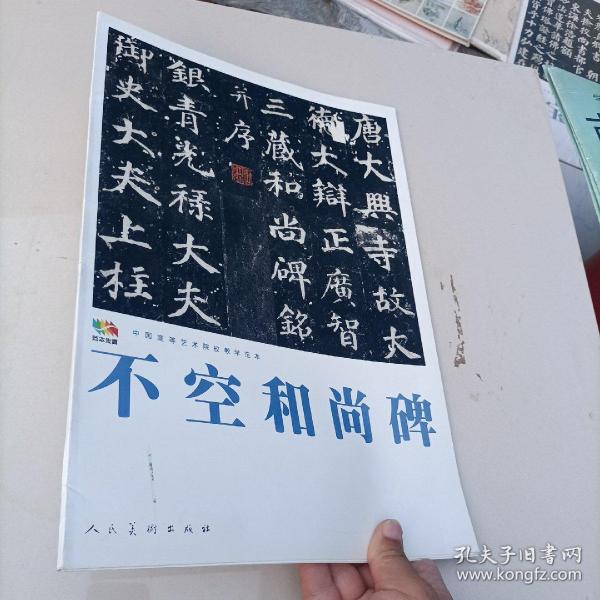 唐大興寺故大
德大辯正廣智
三藏和尚碑銘
并序
銀青光祿大夫
御史大夫上柱
中国高等艺术院校教学范本
不空和尚碑
人民美術出版社
孔夫子旧书网
www.kongfz.com